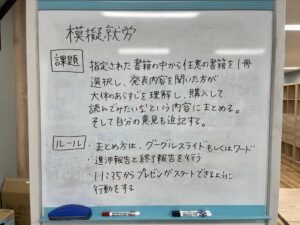 模擬就労
課題
・指定された書籍の中から任意の書籍を1冊
選択し、発表内容を聞いた方が
大体のあらすじを理解し、購入して
読んでみたいな という内容にまとめる。
そして自分の意見も追記する。
ルール
・まとめ方は、グーグルスライドもしくはワード
・進捗報告と終了報告を行う
・11:35からプレゼンがスタートできるように
行動をする